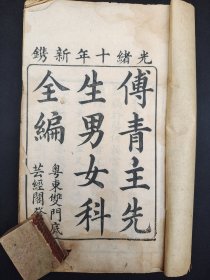 光緒十年新鐫
傅青主先
生男女科
全編
粵東雙門底
芸經閣發